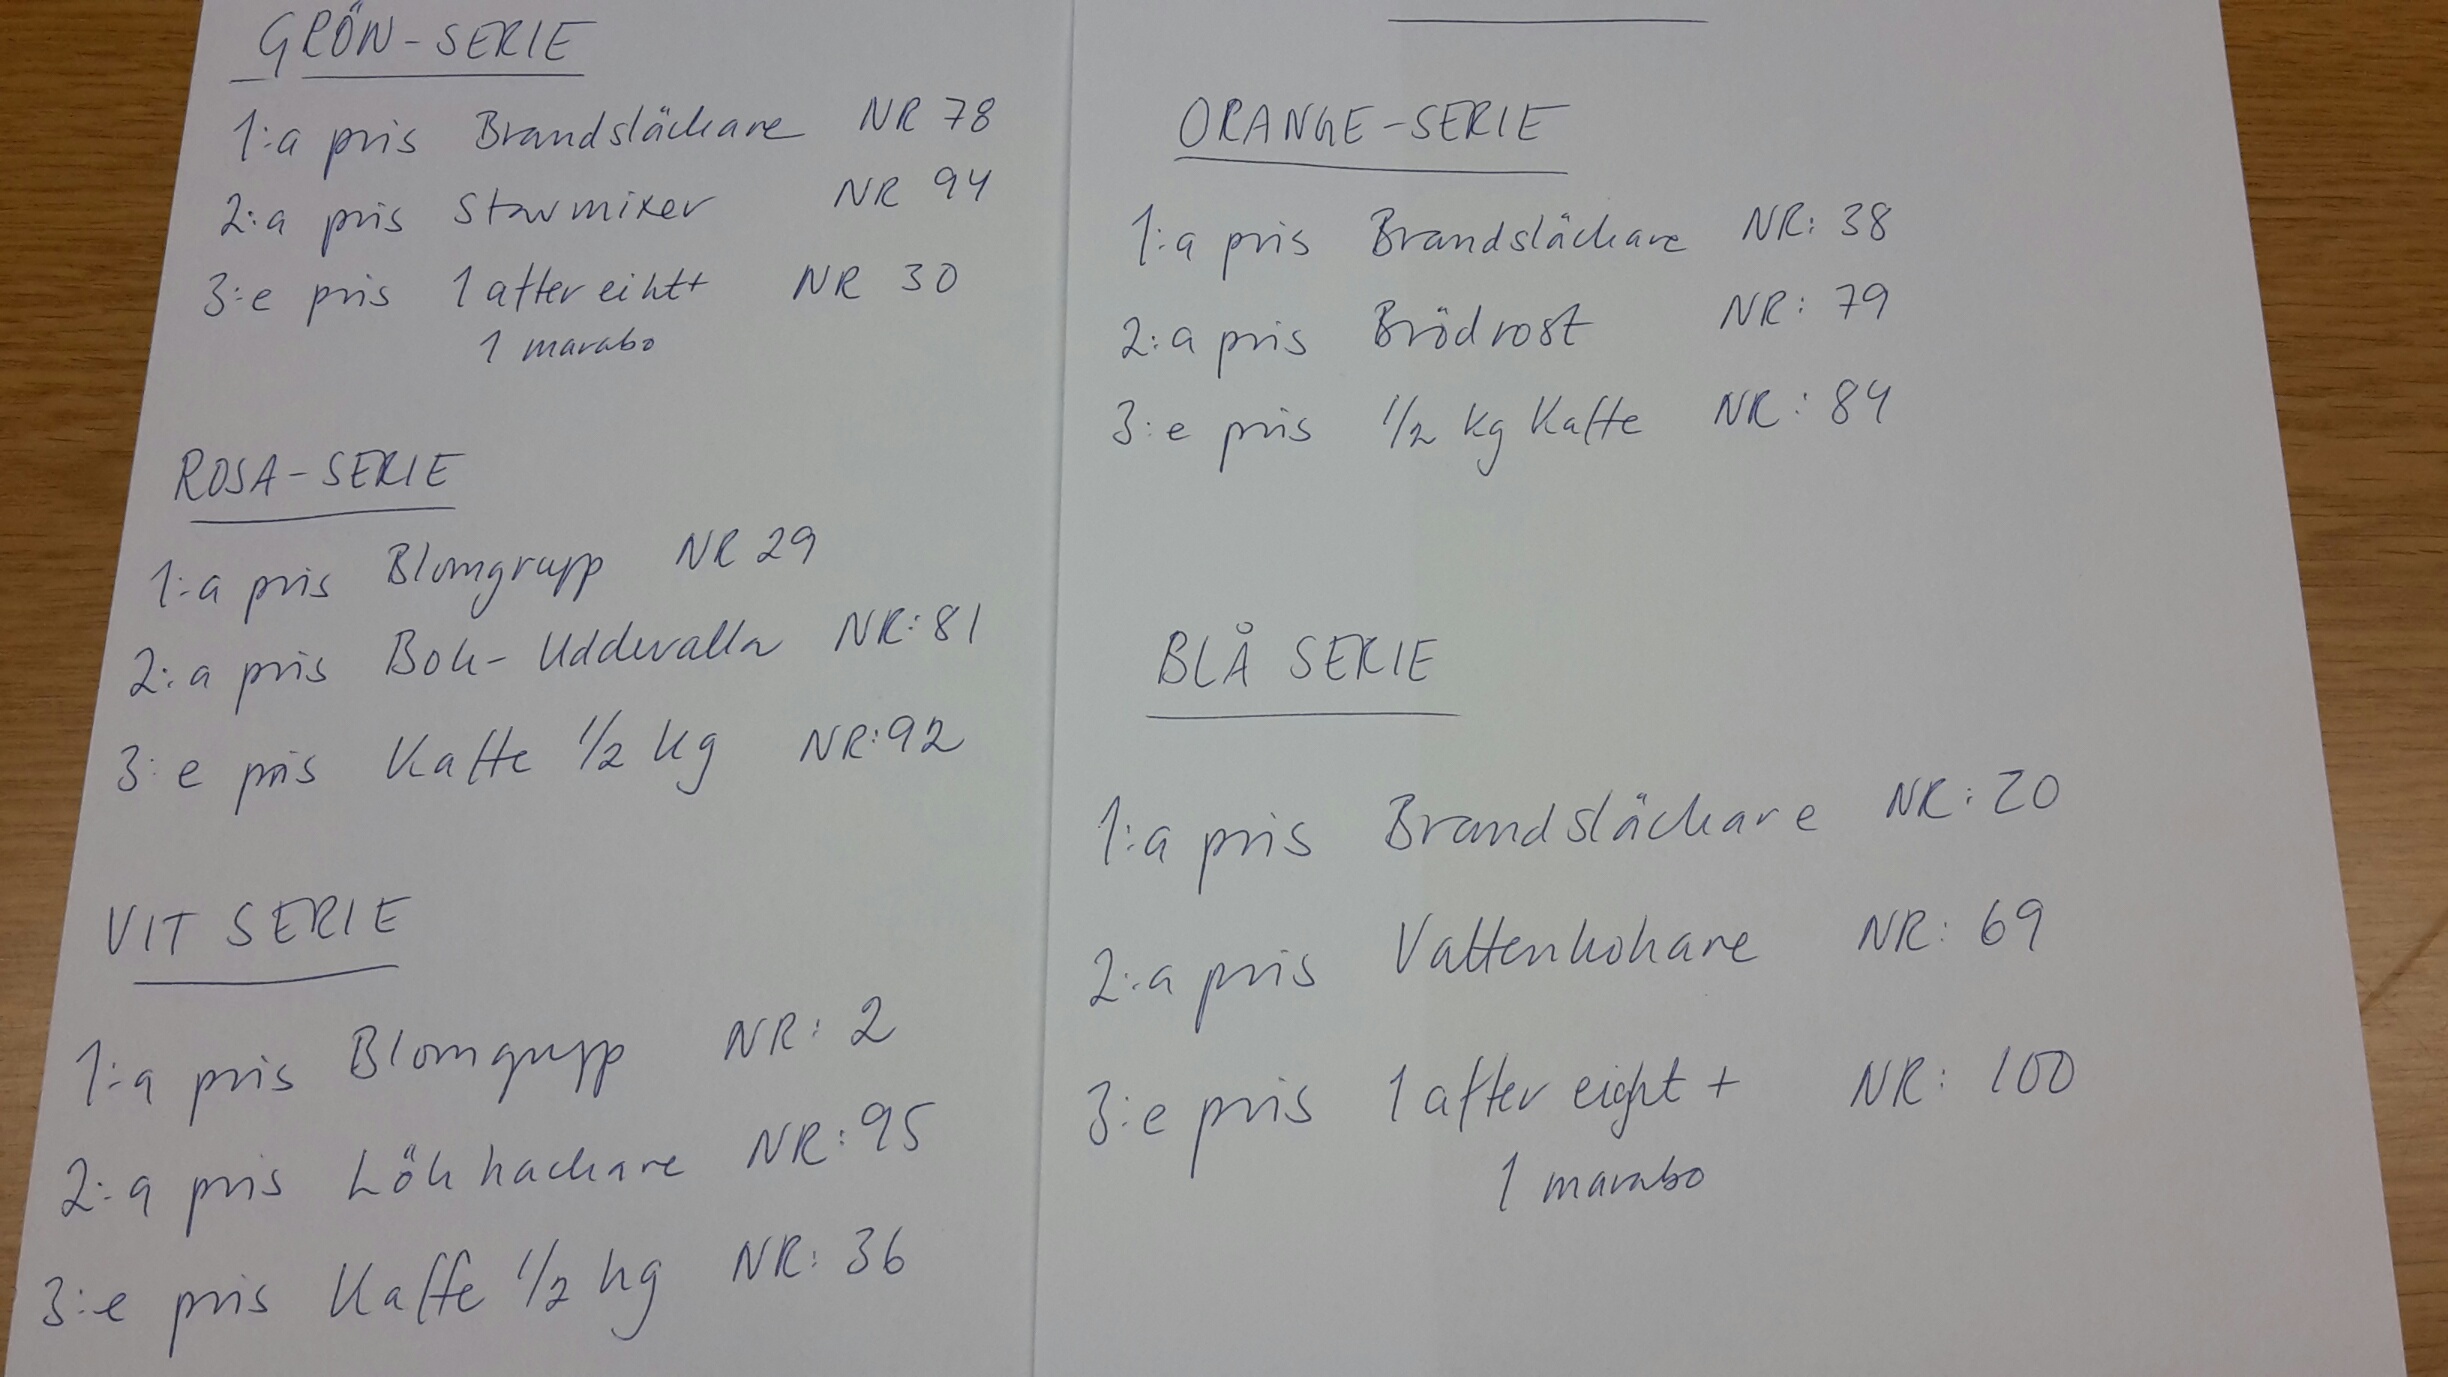 GRÖN-SERIE
1:a pris Brandsläckare NR 78
2:a pris Stavmixer NR 94
3:e pris 1 after eihtt NR 30
1 marabo
ROSA-SERIE
1:a pris Blomgrupp NR 29
2:a pris Bok-Uddevalla NR:81
3:e pris Kaffe 1/2 kg NR:92
VIT SERIE
1:a pris Blomgrupp NR: 2
2:a pris Lökhackare NR:95
3:e pris Kaffe 1/2 kg NR: 36
ORANGE-SERIE
1:a pris Brandsläckare NR: 38
2:a pris Brödrost NR: 79
3:e pris 1/2 kg Kaffe NR: 84
BLÅ SERIE
1:a pris Brandsläckare NR: 20
2:a pris Vattenkokare NR: 69
3:e pris 1 after eight + NR: 100
1 marabo